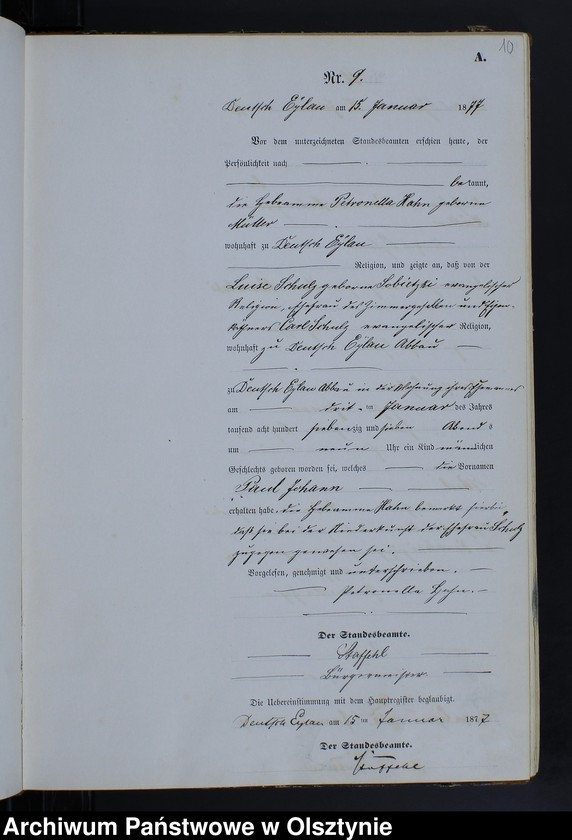 10
A.
Nr. 9.
Deutsch Eylau am 15. Januar 1877
Vor dem unterzeichneten Standesbeamten erschien heute, der
Persönlichkeit nach
bekannt,
die Hebeamme Petronella Hahn geborene
Müller
wohnhaft zu Deutsch Eylau
Religion, und zeigte an, daß von der
Luise Schulz geborne Sobietzki evangelischer
Religion, Ehefrau des Zimmergesellen und
Carl Schulz evangelischer Religion,
wohnhaft zu Deutsch Eylau Abbau
zu Deutsch Eylau Abbau in der Wohnung ihres Ehemannes
am Januar des Jahres
tausend acht hundert siebenzig und sieben Abends
um neun Uhr ein Kind männlichen
Geschlechts geboren worden sei, welches die Vornamen
Paul Johann
erhalten habe, die Hebeamme Hahn bemerkt hierbei,
daß sie bei der Niederkunft der Ehefrau Schulz
zugegen gewesen sei.
Vorgelesen, genehmigt und unterschrieben.
Petronella Hahn.
Der Standesbeamte.
Staffehl
Bürgermeister
Die Uebereinstimmung mit dem Hauptregister beglaubigt.
Deutsch Eylau am 15ten Januar 1877
Der Standesbeamte.
Staffehl
Archiwum Państwowe w Olsztynie